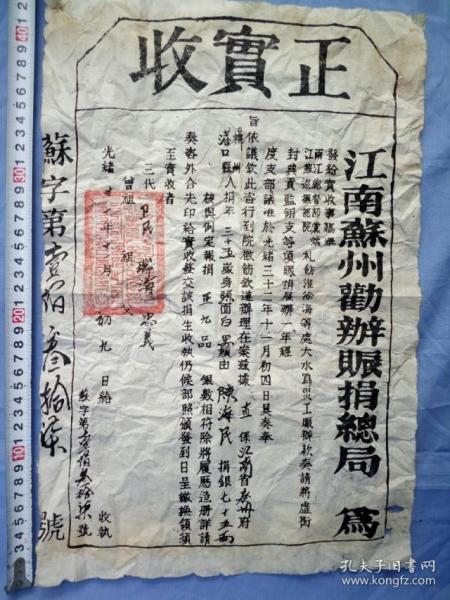 正實收
江南蘇州勸辦賑捐總局 為
發給實收事竊照
兩江總督部堂端
江蘇巡撫部院 札飭淮徐海等處大水為災工賑辦款奏請將虛銜
封典貢監翎支等項賑捐展辦一年經
度支部議准於光緒三十二年十一月初四日具奏奉
旨依議欽此咨行到院檄飭欽遵辦理在案茲據
人捐年三十五歲身張面白 由陳海民捐銀七十五兩
核與例定報捐 九品 銀數相符除將履歷造册詳請
奏咨外合先印給實收發交該捐生收執仍候部照頒發到日呈繳換領須
至實收者
三代
曾祖 祖 父 忠義
光緒 年十二月初九日給 收執
蘇字第壹佰叁拾柒號
蘇字第壹佰叁拾柒 號
孔夫子旧书网
www.kongfz.com